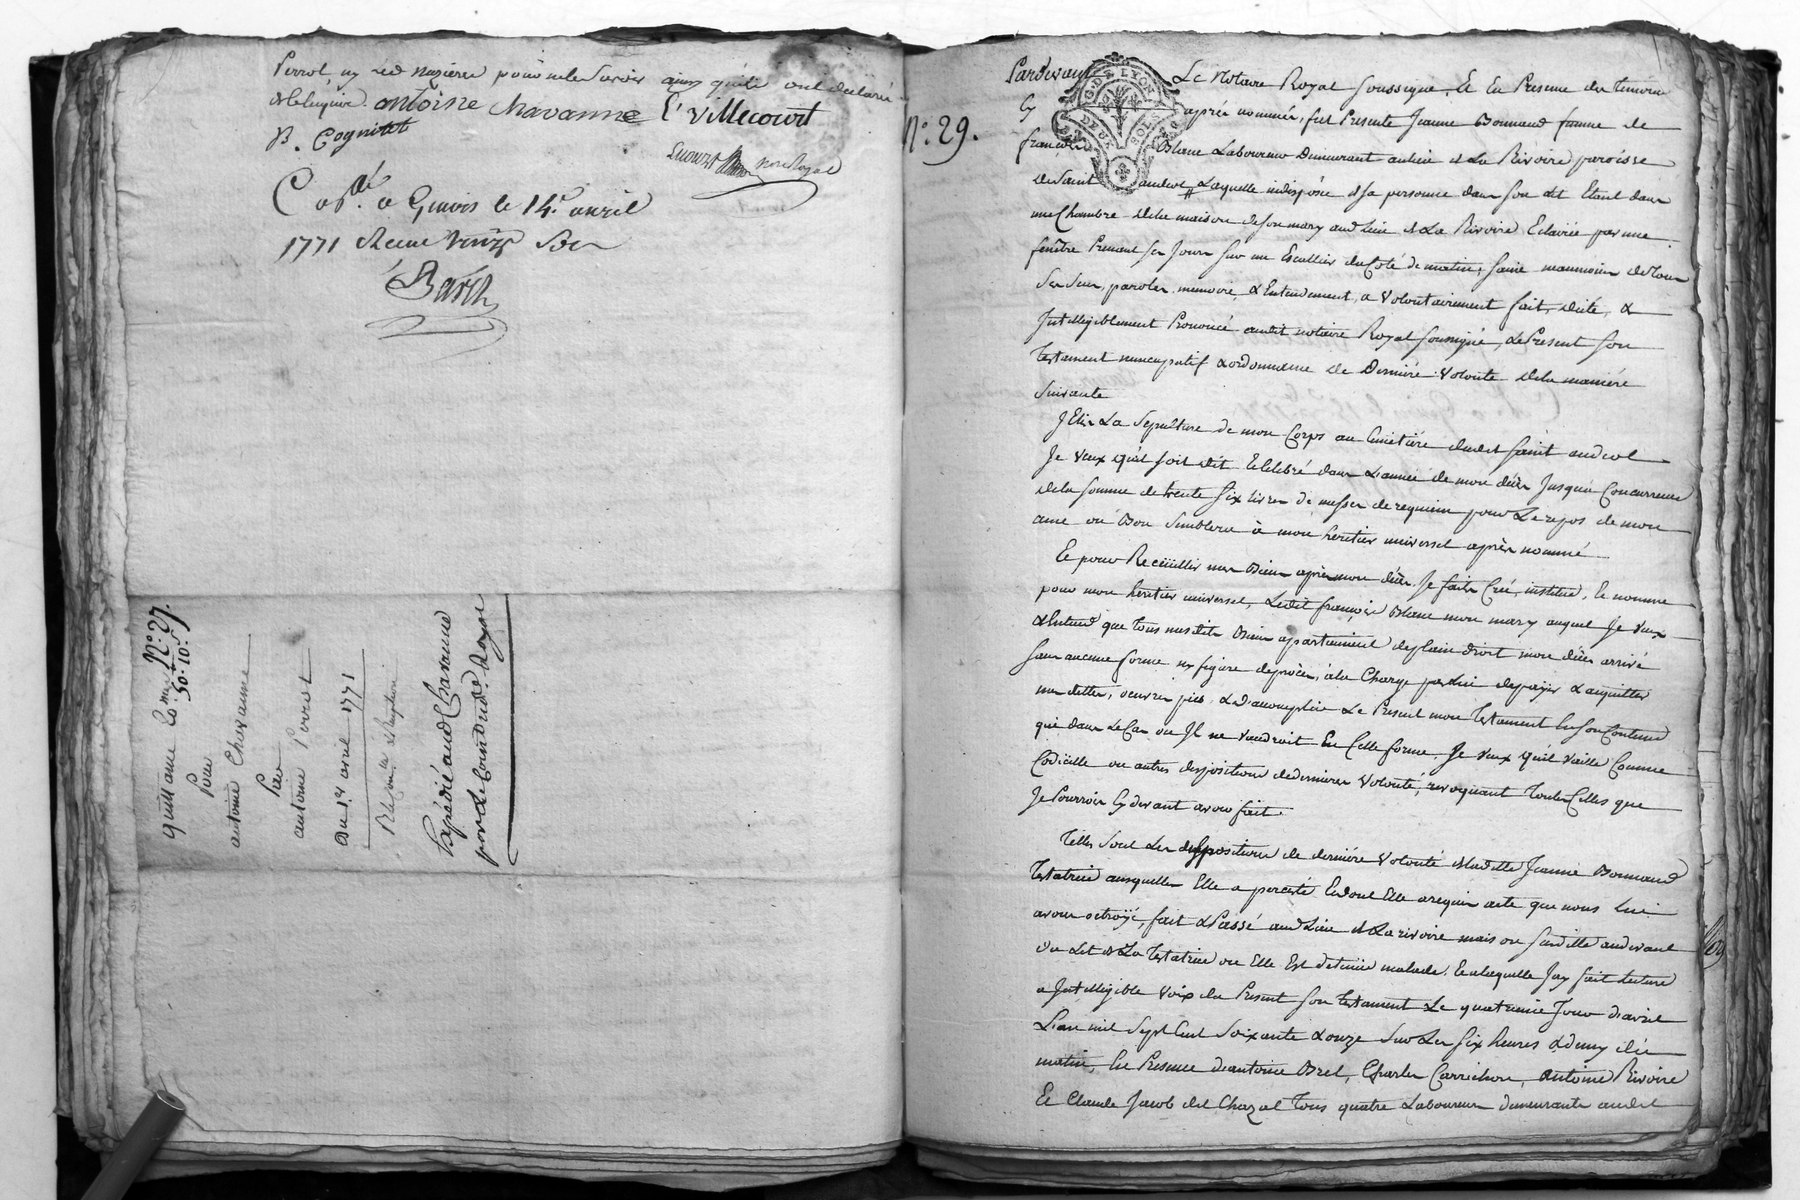 Perrot, ny led Mazieres pour ne le Savoir ainsi qu'ils ont declaré
de Ce Enquis. antoisne chavanne L'Villecourt
B. Cognitat
not Royal
C a Givors le 14e. avril
1771 Recu vingt Sols
Barth
quittance
No. 27.
50. 10s
Pour
antoine Chavanne
Par
antoine Perrot
Du 14 avril 1771
Expédié aud Chavanne
No. 29.
G. DE LYON
DEUX SOLS
Pardevant Le Notaire Royal Soussigné, Et En Presence des temoins
Cy après nommés, fut Presente Jeanne Bonnand femme de
françois Blanc Laboureur Demeurant au lieu de La Rivoire paroisse
de Saint andeol, Laquelle indisposée de sa personne dans son Lit Etant dans
une Chambre de la maison de son mary aud lieu de La Rivoire Eclairée par une
fenêtre Prenant son Jour sur un Escallier du Coté de matin, saine neanmoins de tous
Ses Sens, parolle, memoire, & Entendement, a volontairement fait, dicté, &
Intelligiblement Prononcé audit notaire Royal soussigné, Le Present son
Testament nuncupatif & ordonnance de Derniére volonté de la maniére
Suivante
J'Elis La Sepulture de mon Corps au Cimetiére dudit saint andeol
Je veux qu'il soit dit & Celebré dans L'année de mon décès Jusqu'a Concurrence
de la somme de trente six livres de messes de requiem pour Le repos de mon
ame ou Bon Semblera à mon heritier universel après nommé
Et pour Recüeillir mes Biens après mon décès, Je fais, Crée, institue, Et nomme
pour mon heritier universel, Ledit françois Blanc mon mary auquel Je veux
& Entend que tous mesdits Biens appartiennent de plain droit mon décès arrivé
sans aucune forme ny figure de procès, à la Charge par lui de payer & acquitter
mes dettes, oeuvres pies, & d'accomplir Le Present mon Testament En son Contenu
que dans Le Cas ou Il ne vaudroit En Cette forme, Je veux qu'il vaille Comme
Codicille ou autres dispositions de derniere volonté, revoquant toutes Celles que
Je Pourrois Cy devant avoir fait.
Telles Sont Les dispositions de derniére volonté de ladite Jeanne Bonnand
Testatrice ausquelles Elle a persisté Et dont Elle a requis acte que nous lui
avons octroyé, fait & Passé aud Lieu de La rivoire maison susditte au devant
du Lit de La Testatrice ou Elle Est detenüe malade, Et a laquelle J'ay fait lecture
a Intelligible voix du Present son testament Le quatrieme Jour d'avril
L'an mil Sept Cent Soixante & onze Sur Les six heures & demy du
matin, En Presence d'antoine Brel, Charles Carrichon, Antoine Rivoire
Et Claude Jacob del Chazal tous quatre Laboureurs demeurants audit